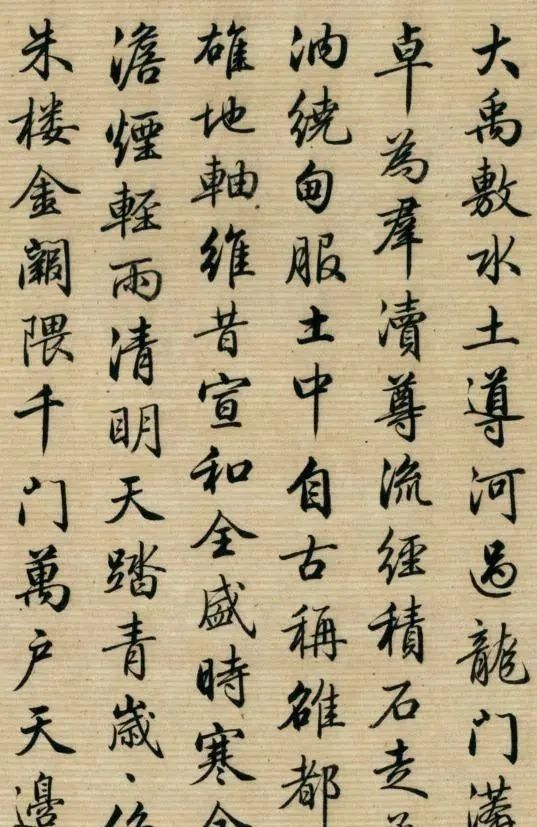 大禹敷水土導河過龍門
卓為羣瀆尊流經積石走
洄繞甸服土中自古稱雄都
雄地軸維昔宣和全盛時寒
澹煙輕雨清明天踏青歲、
朱楼金闕隈千門萬户天邊